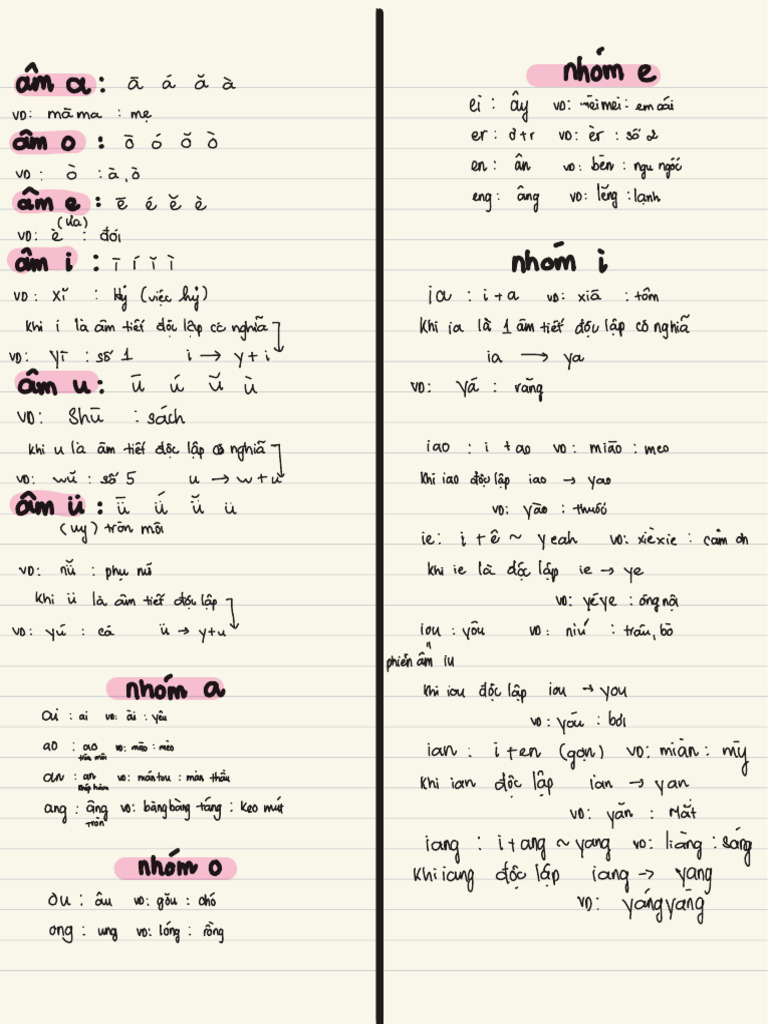 âm a : ā á ǎ à
VD: māma : mẹ
âm o : ō ó ǒ ò
VD: ò : à, ò
âm e : ē é ě è
(ưa)
VD: è : đói
âm i : ī í ǐ ì
VD: xǐ : Hỷ (việc hỷ)
khi i là âm tiết độc lập có nghĩa
VD: yī : số 1 i → y + i
âm u : ū ú ǔ ù
VD: Shū : sách
khi u là âm tiết độc lập có nghĩa
VD: wǔ : số 5 u → w + u
âm ü : ǖ ǘ ǚ ü
(uy) tròn môi
VD: nǚ : phụ nữ
khi ü là âm tiết độc lập
VD: yú : cá ü → y+u
nhóm a
ai : ai VD: ài : yêu
ao : ao VD: māo : mèo
tròn môi
an : an VD: mántou : màn thầu
ang : âng VD: bàngbàng táng : kẹo mút
tròn
nhóm o
ou : âu VD: gǒu : chó
ong : ung VD: lóng : rồng
nhóm e
ei : ây VD: mèimei : em gái
er : ơ + r VD: èr : số 2
en : ân VD: bèn : ngu ngốc
eng : âng VD: lěng : lạnh
nhóm i
ia : i + a VD: xiā : tôm
Khi ia là 1 âm tiết độc lập có nghĩa
ia → ya
VD: yá : răng
iao : i + ao VD: miāo : meo
Khi iao độc lập iao → yao
VD: yào : thuốc
ie : i + ê ~ yeah VD: xièxie : cảm ơn
khi ie là độc lập ie → ye
VD: yéye : ông nội
iou : yâu VD: niú : trâu, bò
phiên âm iu
Khi iou độc lập iou → you
VD: yóu : bơi
ian : i + en (gọn) VD: miàn : mỳ
Khi ian độc lập ian → yan
VD: yǎn : Mắt
iang : i + ang ~ yang VD: liàng : sáng
Khi iang độc lập iang → yang
VD: yángyàng